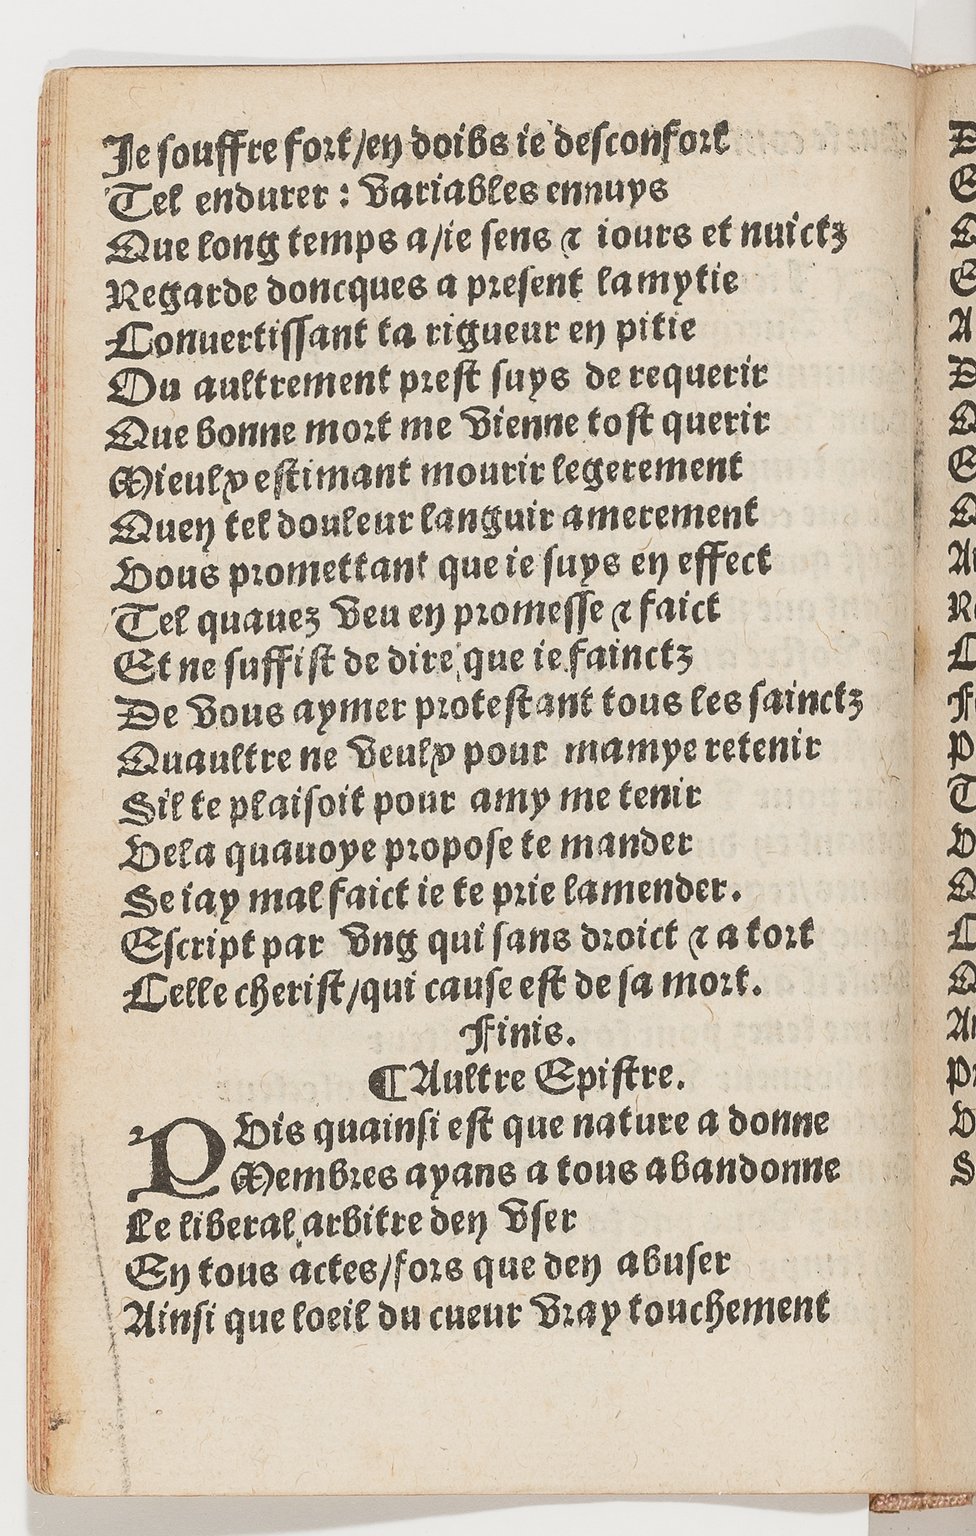 Je souffre fort/en doibs ie desconfort
Tel endurer : variables ennuys
Que long temps a/ie sens ⁊ iours et nuictz
Regarde doncques a present lamytie
Conuertissant ta rigueur en pitie
Ou aultrement prest suys de requerir
Que bonne mort me vienne tost querir
Mieulx estimant mourir legerement
Quen tel douleur languir amerement
Vous promettant que ie suys en effect
Tel quauez veu en promesse ⁊ faict
Et ne suffist de dire que ie fainctz
De vous aymer protestant tous les sainctz
Quaultre ne veulx pour mamye retenir
Sil te plaisoit pour amy me tenir
Vela quauoye propose te mander
Se iay mal faict ie te prie lamender.
Escript par vng qui sans droict ⁊ a tort
Celle cherist/qui cause est de sa mort.
Finis.
¶Aultre Epistre.
PVis quainsi est que nature a donne
Membres ayans a tous abandonne
Le liberal arbitre den vser
En tous actes/fors que den abuser
Ainsi que loeil du cueur vray touchement
D
E
Q
E
A
D
Q
E
Q
Au
Re
C
Fe
P
T
V
Q
C
Q
An
Pr
V
S